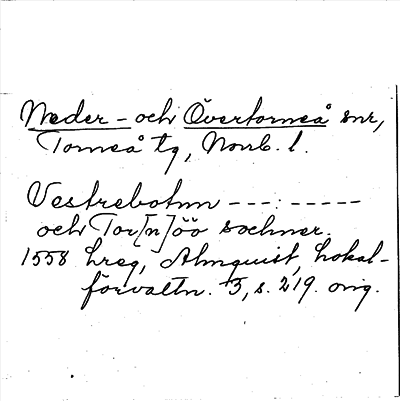 Neder- och Övertorneå snr,
Torneå tg, Norrb. l.
Vestrebotnn ---:-----
och Tor[n]öö sochner.
1558 hreg, Almquist, Lokal-
förvaltn. 3, s. 219. orig.